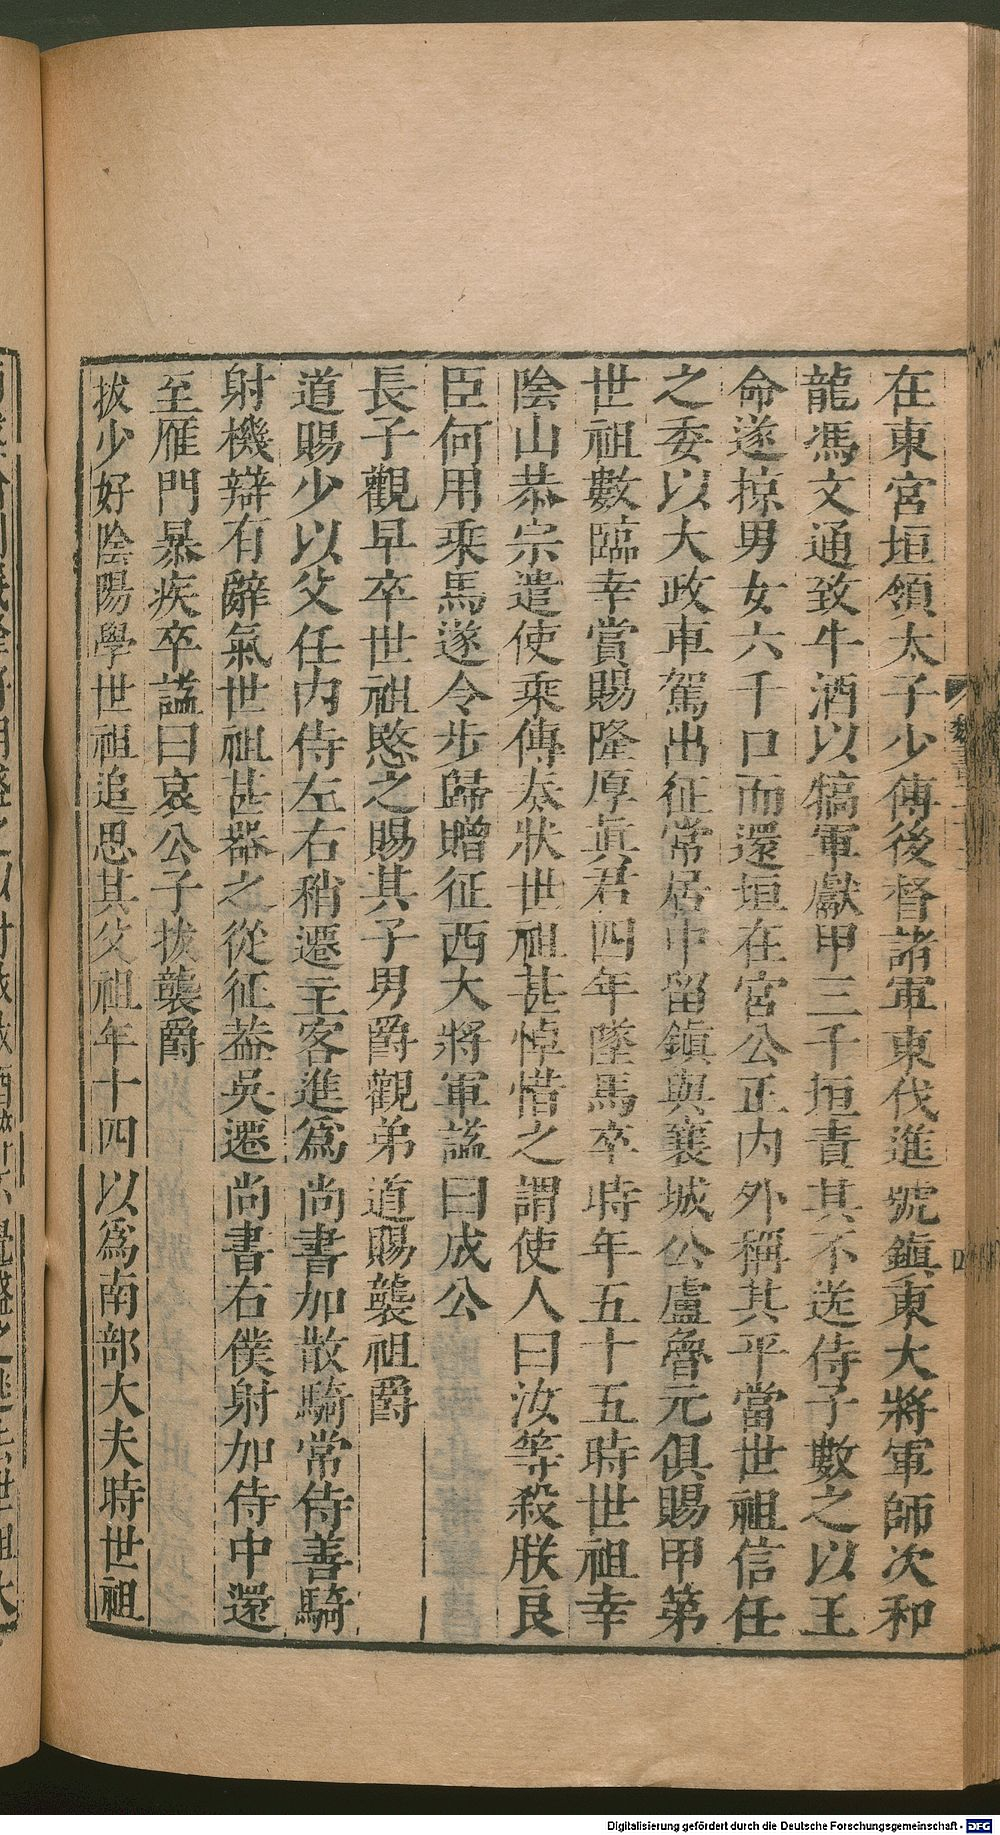 在東宮垣領太子少傅後督諸軍東伐進號鎭東大將軍師次和
龍馮文通致牛酒以犒軍獻甲三千垣責其不送侍子數之以王
命遂掠男女六千口而還垣在宮公正內外稱其平當世祖信任
之委以大政車駕出征常居中留鎭與襄城公盧魯元俱賜甲第
世祖數臨幸賞賜隆厚眞君四年墜馬卒時年五十五時世祖幸
陰山恭宗遣使乘傳奏狀世祖甚悼惜之謂使人曰汝等殺朕良
臣何用乘馬遂令步歸贈征西大將軍謚曰成公
長子觀早卒世祖愍之賜其子男爵觀弟道賜襲祖爵
道賜少以父任內侍左右稍遷主客進爲尚書加散騎常侍善騎
射機辯有辭氣世祖甚器之從征蓋吳遷尚書右僕射加侍中還
至雁門暴疾卒謚曰哀公子拔襲爵
拔少好陰陽學世祖追思其父祖年十四以爲南部大夫時世祖
魏書二十六
四
Digitalisierung gefördert durch die Deutsche Forschungsgemeinschaft - DFG